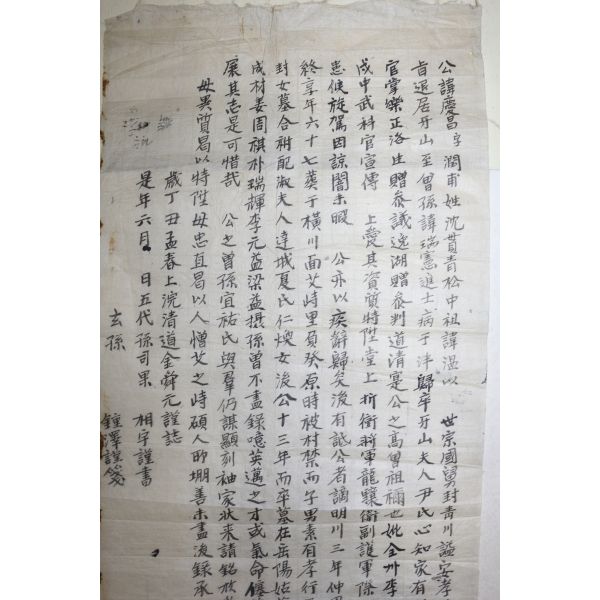 公諱慶昌字潤甫姓沈貫青松中祖諱溫以 世宗國舅封青川謚安孝
旨退居牙山至曾孫諱瑞憲進士病于泮歸卒牙山夫人尹氏心知家有
官掌樂正洛生贈參議逸湖贈參判道清寔公之高曾祖禰也妣全州李
戊申武科官宣傳 上愛其資質特陞堂上折衝將軍龍驤衛副護軍際
患使旋駕因諒闇未暇 公亦以疾辭歸矣後有訟公者謫明川三年仲
終享年六十七葬于橫川面艾峙里負癸原時被村禁而子男素有孝行
封女墓合祔配淑夫人達城夏氏仁煥女後公十三年而卒墓在岳陽姑
成材妻周祺朴瑞輝李元益梁益攝孫曾不盡錄噫英邁之才或氣命
展其志是可惜哉 公之曾孫宜祐氏與羣仍謀顯刻袖家狀來請銘
毋異質曷以特陞毋忠直曷以人憎艾之峙碩人所堋善未盡後錄承
歲丁丑孟春上浣清道金舜元謹誌
是年六月 日五代孫司果 相宇謹書
玄孫 鍾澤謹箋